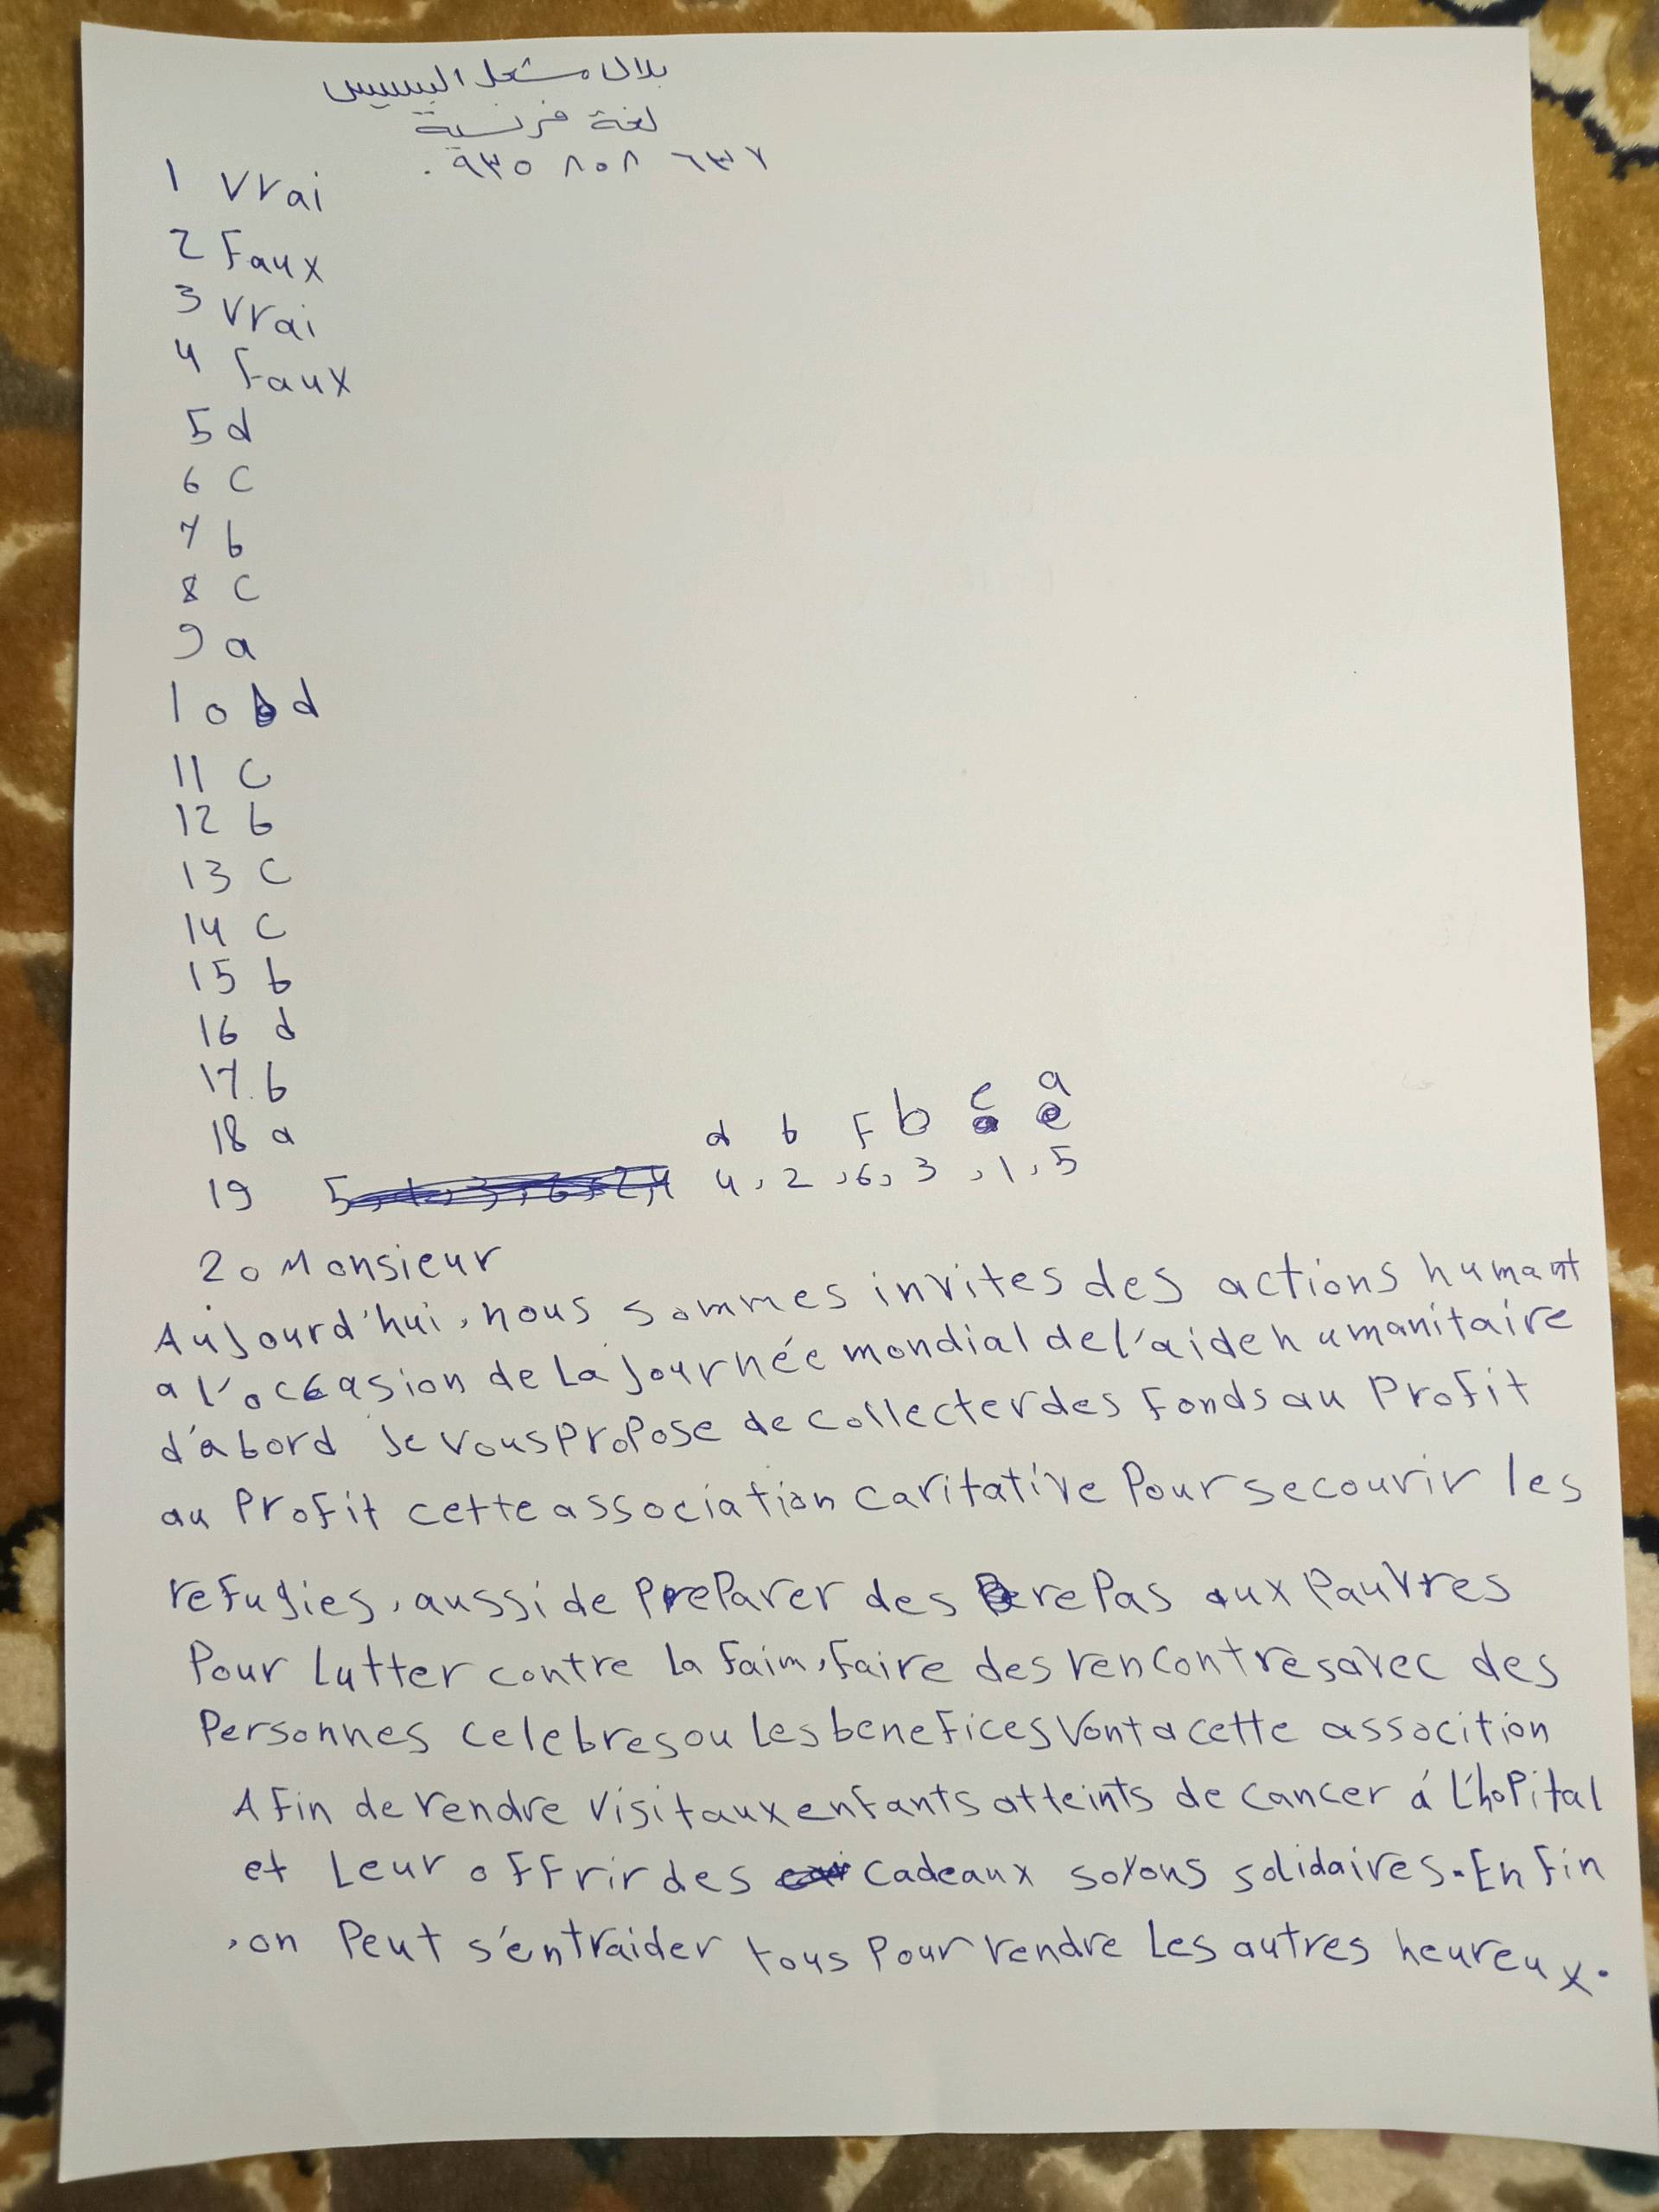 بلال مشعل البسيس
لغة فرنسية
٠٩٣٥ ٨٠٨ ٦٣٧
1 Vrai
2 Faux
3 Vrai
4 Faux
5 d
6 c
7 b
8 c
9 a
10 d
11 c
12 b
13 c
14 c
15 b
16 d
17 b
18 a
d b F b c a
e
19 4, 2, 6, 3, 1, 5
20 Monsieur
Aujourd'hui, nous sommes invites des actions humant
a l'occasion de La Journée mondial de l'aide humanitaire
d'abord Je vous propose de collecter des fonds au profit
au profit cette association caritative pour secourir les
refugies, aussi de preparer des repas aux pauvres
pour lutter contre la faim, faire des rencontres avec des
personnes celebres ou les benefices vont a cette assocition
Afin de rendre visit aux enfants atteints de cancer á L'hopital
et Leur offrir des cadeaux soyons solidaires. En fin
, on peut s'entraider tous pour rendre les autres heureux.